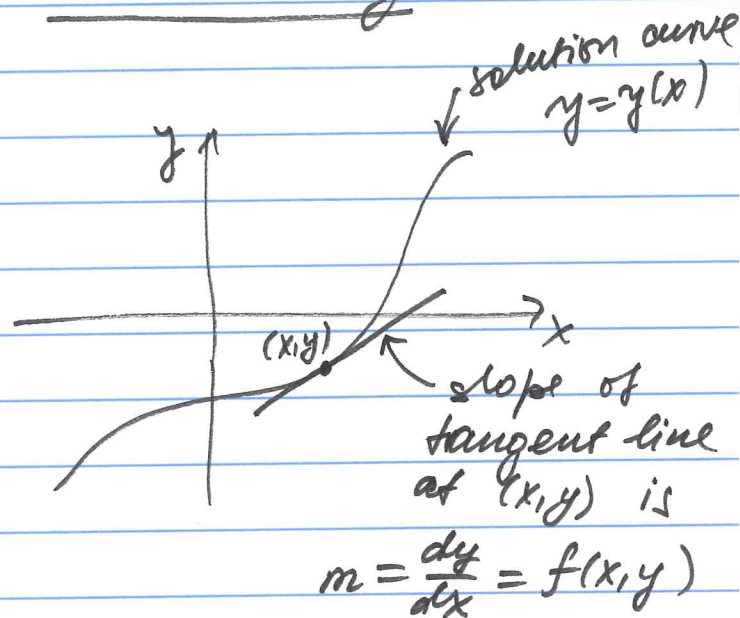 solution curve
y=y(x)
y
x
(x,y)
slope of
tangent line
at (x,y) is
m = dy/dx = f(x,y)